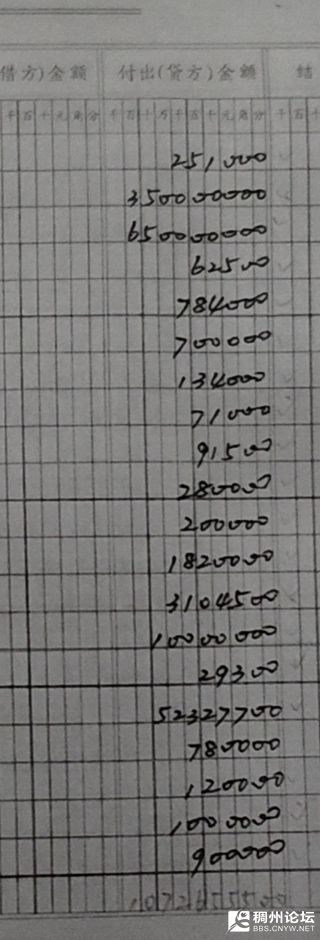 借方)金額 付出(贷方)金額 结
千百十元角分 千百十万千百十元角分 千百十
251000
350000000
650000000
62500
784000
700000
134000
71000
91500
280000
200000
1820000
3104500
10000000
29300
52327700
780000
120000
1000000
900000
1072655500
稠州论坛
BBS.CNYW.NET